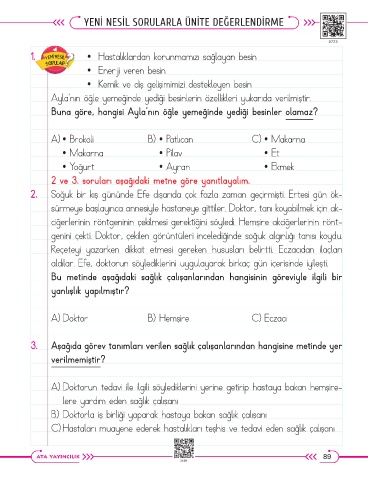 YENİ NESİL SORULARLA ÜNİTE DEĞERLENDİRME
1. YENİ NESİL SORULAR • Hastalıklardan korunmamızı sağlayan besin
• Enerji veren besin
• Kemik ve diş gelişimimizi destekleyen besin
Ayla'nın öğle yemeğinde yediği besinlerin özellikleri yukarıda verilmiştir.
Buna göre, hangisi Ayla'nın öğle yemeğinde yediği besinler olamaz?
A) • Brokoli B) • Patlıcan C) • Makarna
• Makarna • Pilav • Et
• Yoğurt • Ayran • Ekmek
2 ve 3. soruları aşağıdaki metne göre yanıtlayalım.
2. Soğuk bir kış gününde Efe dışarıda çok fazla zaman geçirmişti. Ertesi gün ök-
sürmeye başlayınca annesiyle hastaneye gittiler. Doktor, tanı koyabilmek için ak-
ciğerlerinin röntgeninin çekilmesi gerektiğini söyledi. Hemşire akciğerlerinin rönt-
genini çekti. Doktor, çekilen görüntüleri incelediğinde soğuk algınlığı tanısı koydu.
Reçeteyi yazarken dikkat etmesi gereken hususları belirtti. Eczacıdan ilaçları
aldılar. Efe, doktorun söylediklerini uygulayarak birkaç gün içerisinde iyileşti.
Bu metinde aşağıdaki sağlık çalışanlarından hangisinin göreviyle ilgili bir
yanlışlık yapılmıştır?
A) Doktor B) Hemşire C) Eczacı
3. Aşağıda görev tanımları verilen sağlık çalışanlarından hangisine metinde yer
verilmemiştir?
A) Doktorun tedavi ile ilgili söylediklerini yerine getirip hastaya bakan hemşire-
lere yardım eden sağlık çalışanı
B) Doktorla iş birliği yaparak hastaya bakan sağlık çalışanı
C) Hastaları muayene ederek hastalıkları teşhis ve tedavi eden sağlık çalışanı
ATA YAYINCILIK 89